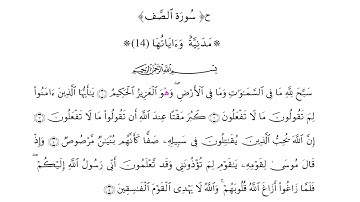 ح﴿ سُورَةُ ٱلصَّف﴾
*﴿ مَدَنِيَّةٌ وَءَايَاتُهَا (14) ﴾*
بِسْمِ ٱللَّهِ ٱلرَّحْمَٰنِ ٱلرَّحِيمِ
سَبَّحَ لِلَّهِ مَا فِي ٱلسَّمَٰوَٰتِ وَمَا فِي ٱلْأَرْضِ وَهُوَ ٱلْعَزِيزُ ٱلْحَكِيمُ ۝ يَٰٓأَيُّهَا ٱلَّذِينَ ءَامَنُواْ
لِمَ تَقُولُونَ مَا لَا تَفْعَلُونَ ۝ كَبُرَ مَقْتًا عِندَ ٱللَّهِ أَن تَقُولُواْ مَا لَا تَفْعَلُونَ ۝
إِنَّ ٱللَّهَ يُحِبُّ ٱلَّذِينَ يُقَٰتِلُونَ فِي سَبِيلِهِۦ صَفًّا كَأَنَّهُم بُنْيَٰنٌ مَّرْصُوصٌ ۝ وَإِذْ
قَالَ مُوسَىٰ لِقَوْمِهِۦ يَٰقَوْمِ لِمَ تُؤْذُونَنِي وَقَد تَّعْلَمُونَ أَنِّي رَسُولُ ٱللَّهِ إِلَيْكُمْ
فَلَمَّا زَاغُوٓاْ أَزَاغَ ٱللَّهُ قُلُوبَهُمْ وَٱللَّهُ لَا يَهْدِي ٱلْقَوْمَ ٱلْفَٰسِقِينَ ۝